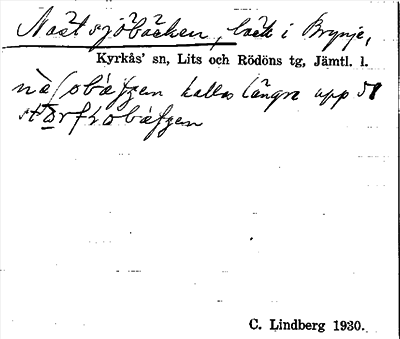 Nästsjöbäcken, bäck i Brynje,
Kyrkås' sn, Lits och Rödöns tg, Jämtl. l.
kallas längre upp
C. Lindberg 1930.